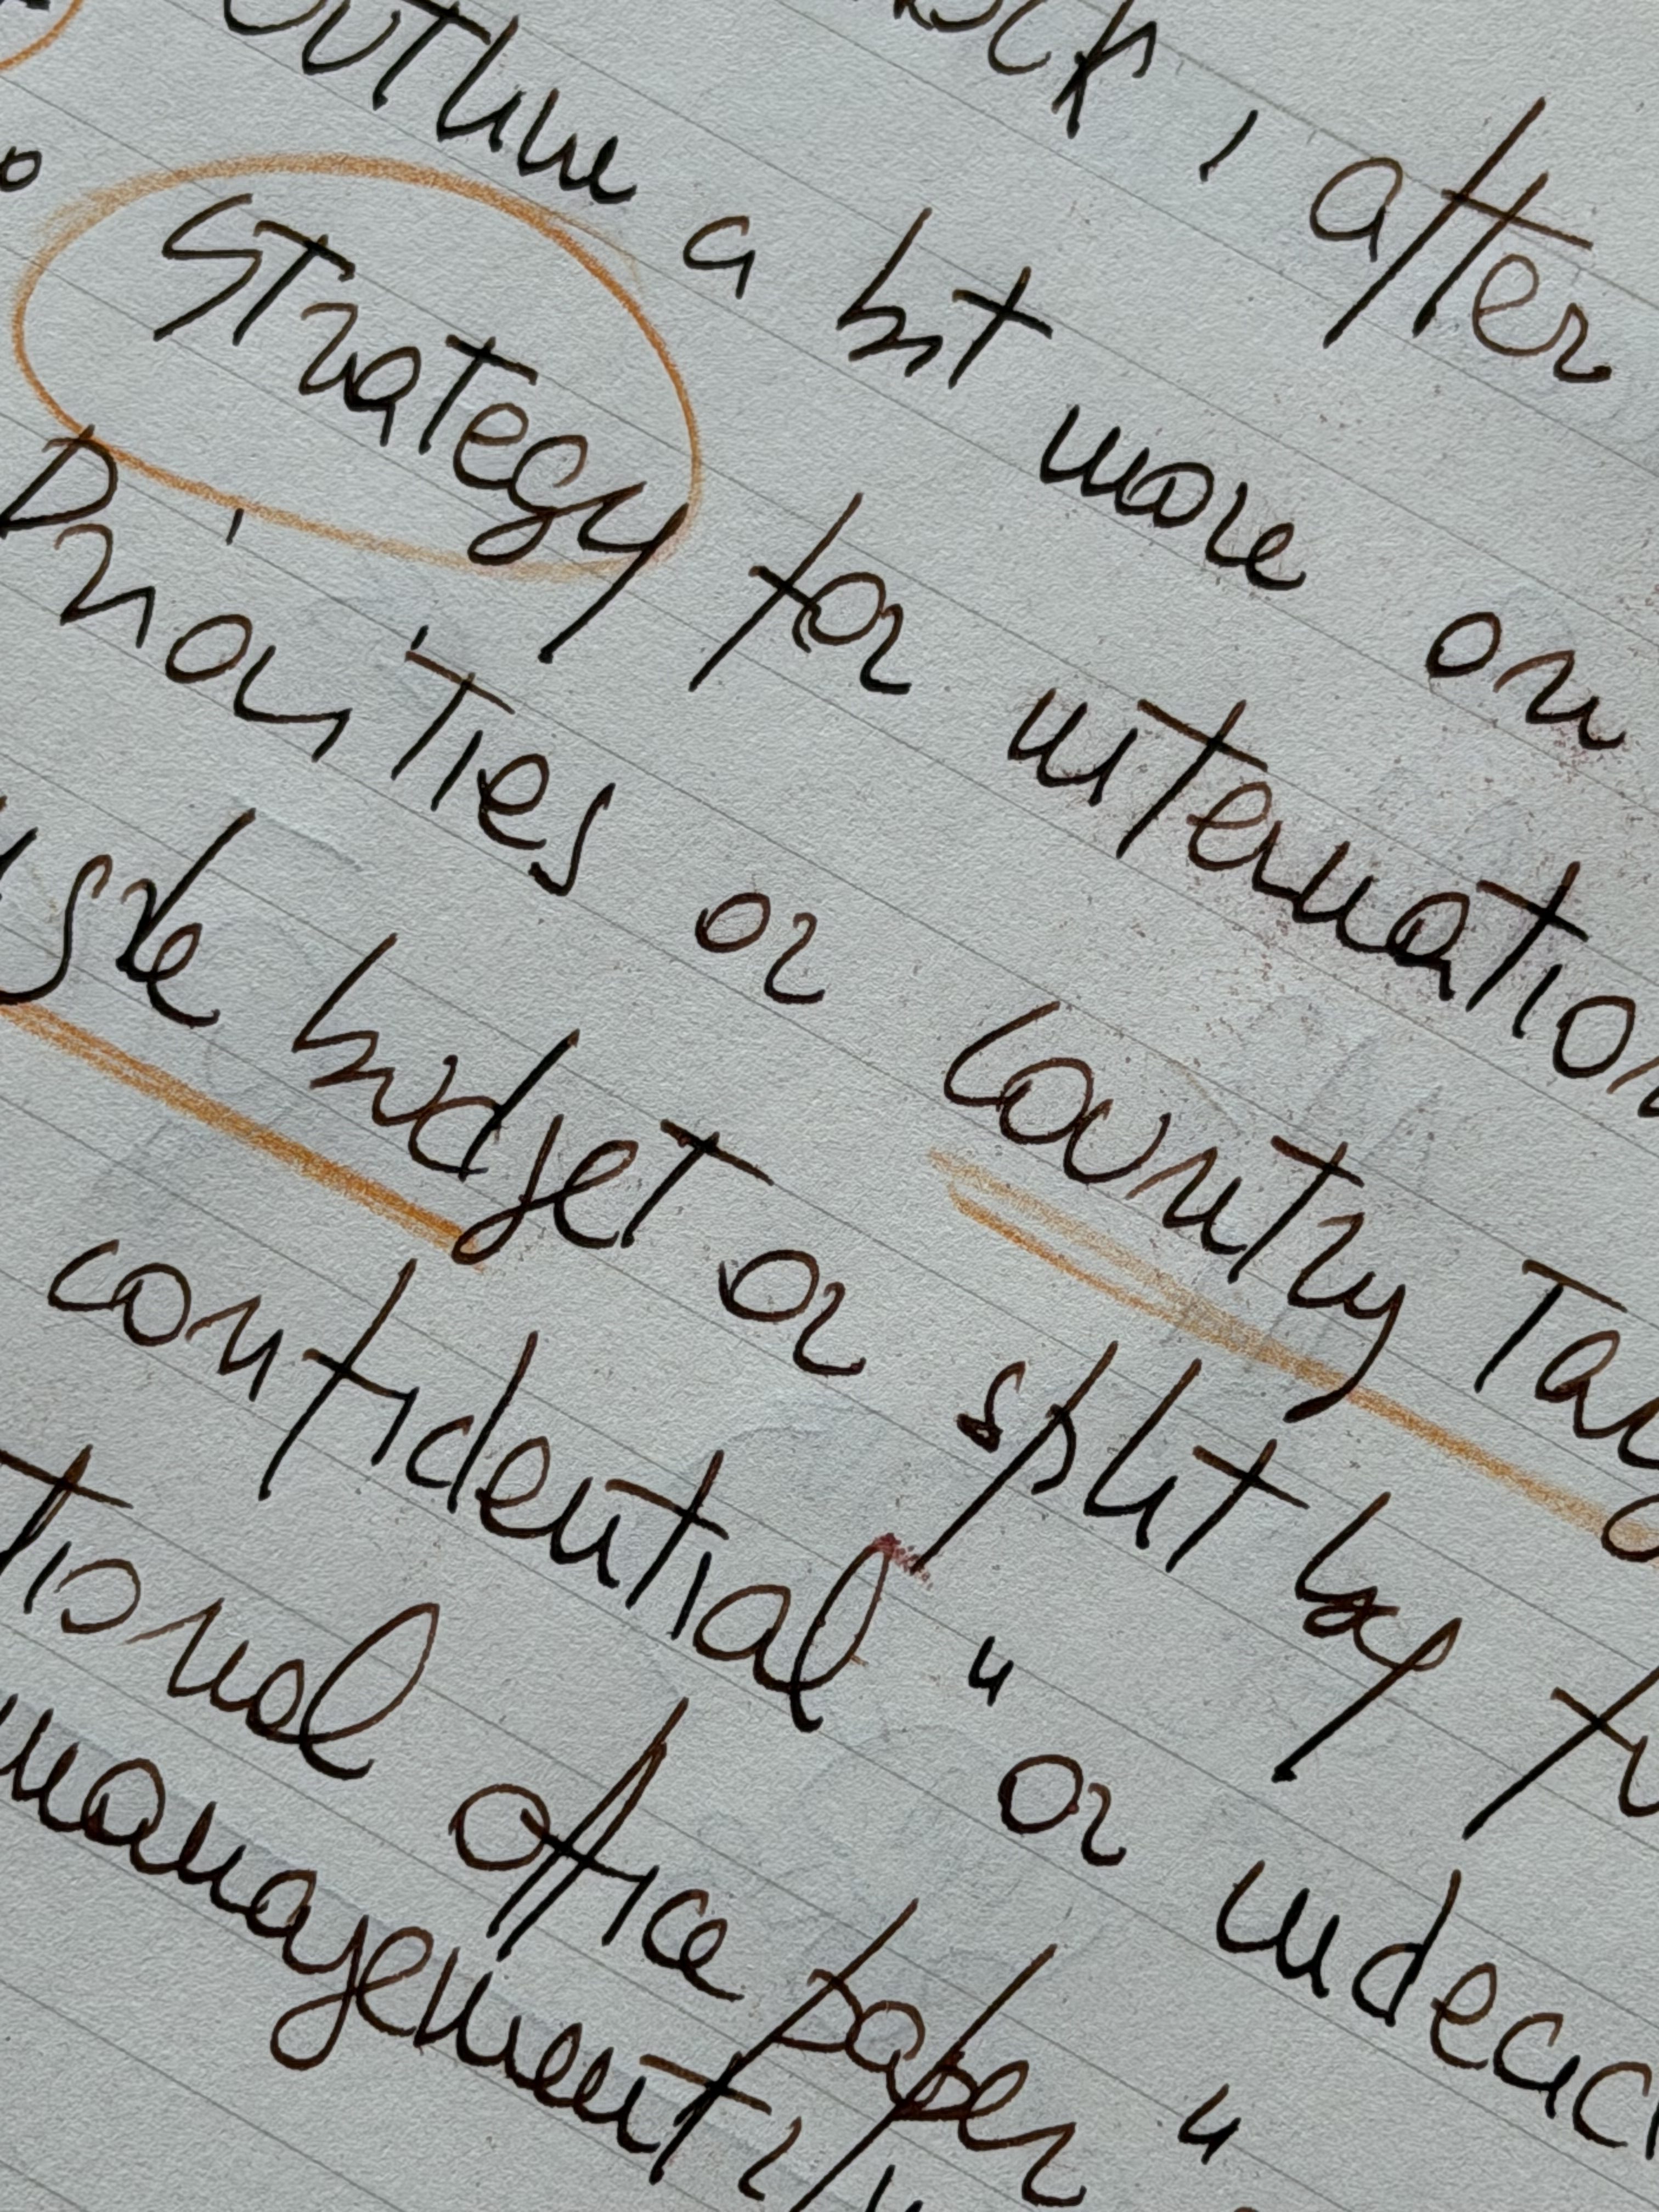 , after
outline a bit more on
Strategy for internation
Priorities or country Ta
budget or split by fu
confidential " or undeci
tional office paper "
management